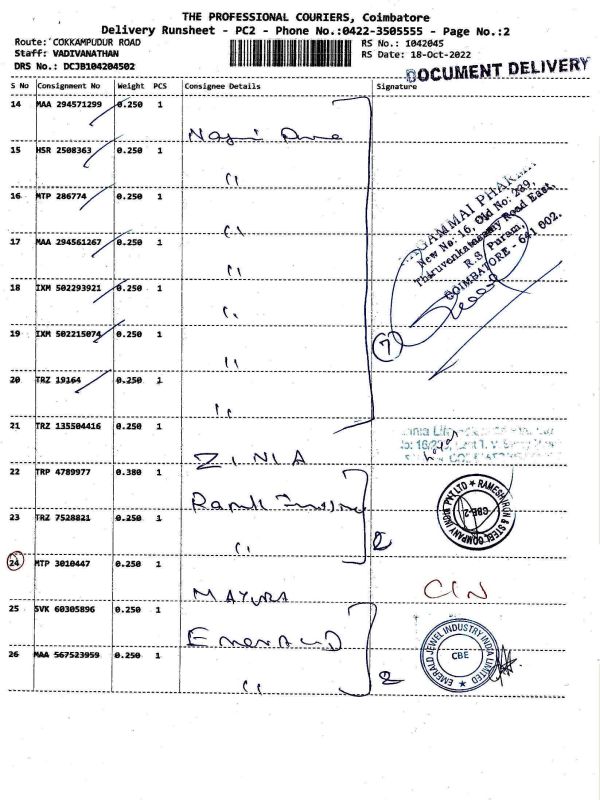 THE PROFESSIONAL COURIERS, Coimbatore
Delivery Runsheet - PC2 - Phone No.:0422-3505555 - Page No.:2
Route: COKKAMPUDUR ROAD
RS No.: 1042045
Staff: VADIVANATHAN
RS Date: 18-Oct-2022
DRS No.: DCJB104204502
DOCUMENT DELIVERY
S No Consignment No Weight PCS Consignee Details Signature
14 MAA 294571299 0.250 1
15 HSR 2508363 0.250 1
16 MTP 286774 0.250 1
17 MAA 294561267 0.250 1
18 IXM 502293921 0.250 1
19 IXM 502215074 0.250 1
20 TRZ 19164 0.250 1
GAMMAI PHARMA
New No: 16, Old No: 289,
Thiruvenkatasamy Road East,
R.S Puram,
COIMBATORE - 641 002.
7
21 TRZ 135504416 0.250 1
ZINIA
22 TRP 4789977 0.380 1
23 TRZ 7528821 0.250 1
RAMESH IRON & STEEL COMPANY INDIA PVT LTD
CBE-2
2
24 MTP 3010447 0.250 1
MAYURA
CIN
25 SVK 60305896 0.250 1
Emerald
26 MAA 567523959 0.250 1
EMERALD JEWEL INDUSTRY INDIA LIMITED
CBE
2